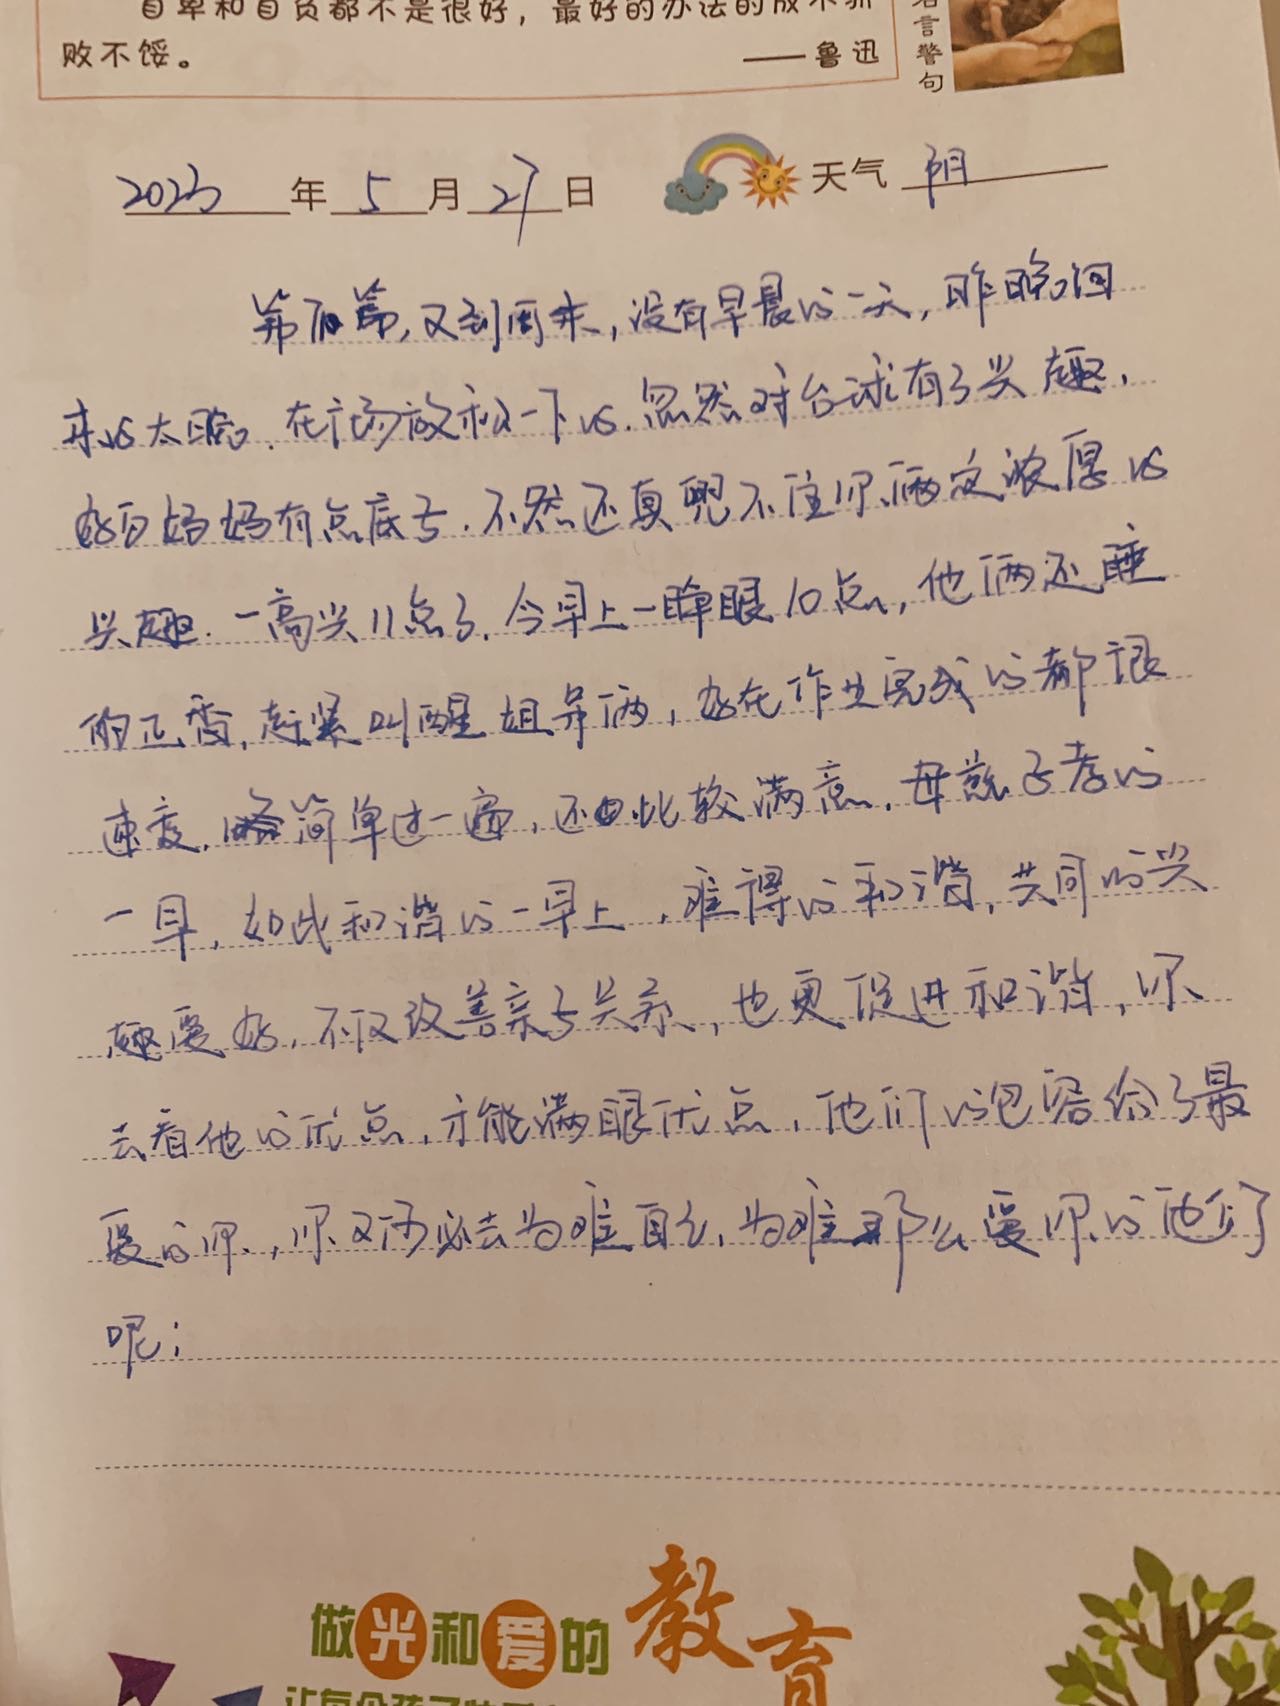 自卑和自负都不是很好，最好的办法的胜不骄
败不馁。
——鲁迅
名言警句
2023年5月27日 天气 阴
第百篇，又到周末，没有早晨的一天，昨晚回
来的太晚，在广场放松一下的，忽然对台球有了兴趣，
好在妈妈有点底子，不然还真兜不住你俩这浓厚的
兴趣。一高兴11点了，今早上一睁眼10点，他俩还睡
的正香，赶紧叫醒姐弟俩，好在作业完成的都很
速度，简单过一遍，还比较满意，母慈子孝的
一早，如此和谐的一早上，难得的和谐，共同的兴
趣爱好，不仅改善亲子关系，也更促进和谐，你
去看他的优点，才能满眼优点，他们的包容给了最
爱的你，你又何必去为难自己，为难那么爱你的他们
呢；
做光和爱的教育